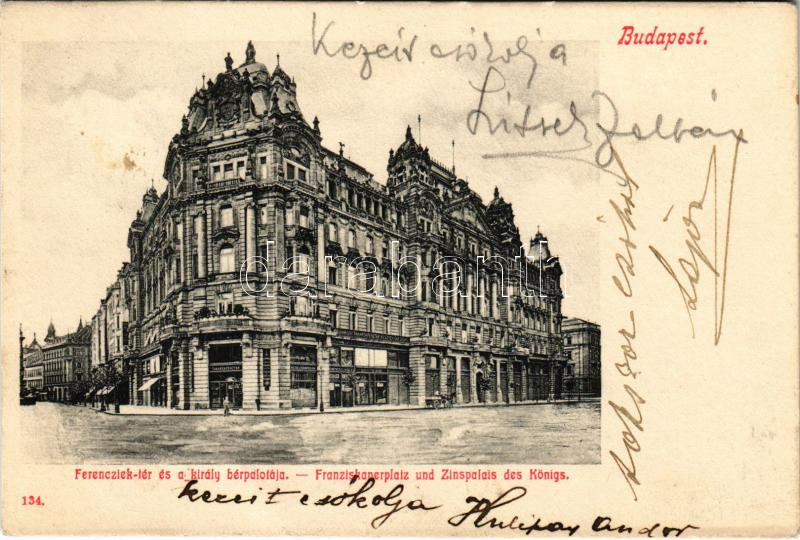 Budapest.
Kezeit csókolj a
Zoltán
sokszor csókol
Lajos
darabanth
Ferencziek-tér és a király bérpalotája. — Franziskanerplatz und Zinspalais des Königs.
134.
kezeit csókolja
Andor